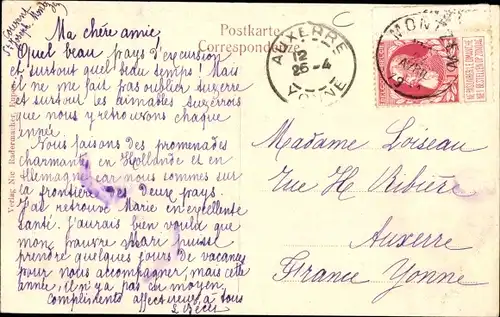 Postkarte
Correspondenze
Ma chère amie,
Quel beau pays d'excursion
et surtout quel beau temps! Mais
il ne me fait pas oublier suzerre
et surtout les aimables suzerrois
que nous y retrouvons chaque
année.
Nous faisons des promenades
charmantes en Hollande et en
Allemagne car nous sommes sur
la frontière des deux pays.
J'ai retrouvé Marie en excellente
santé. J'aurais bien voulu que
mon pauvre Mari puisse
prendre quelques jours de vacances
pour nous accompagner, mais cette
année, il n'y a pas eu moyen,
compliments affectueux à tous
Verlag Nic Radermacher,
AUXERRE
12
25-4
YONNE
MONTZEN
NE PAS LIVRER LE DIMANCHE
NIET BESTELLEN OP ZONDAG
Madame Loiseau
Rue H Ribière
Auxerre
France Yonne